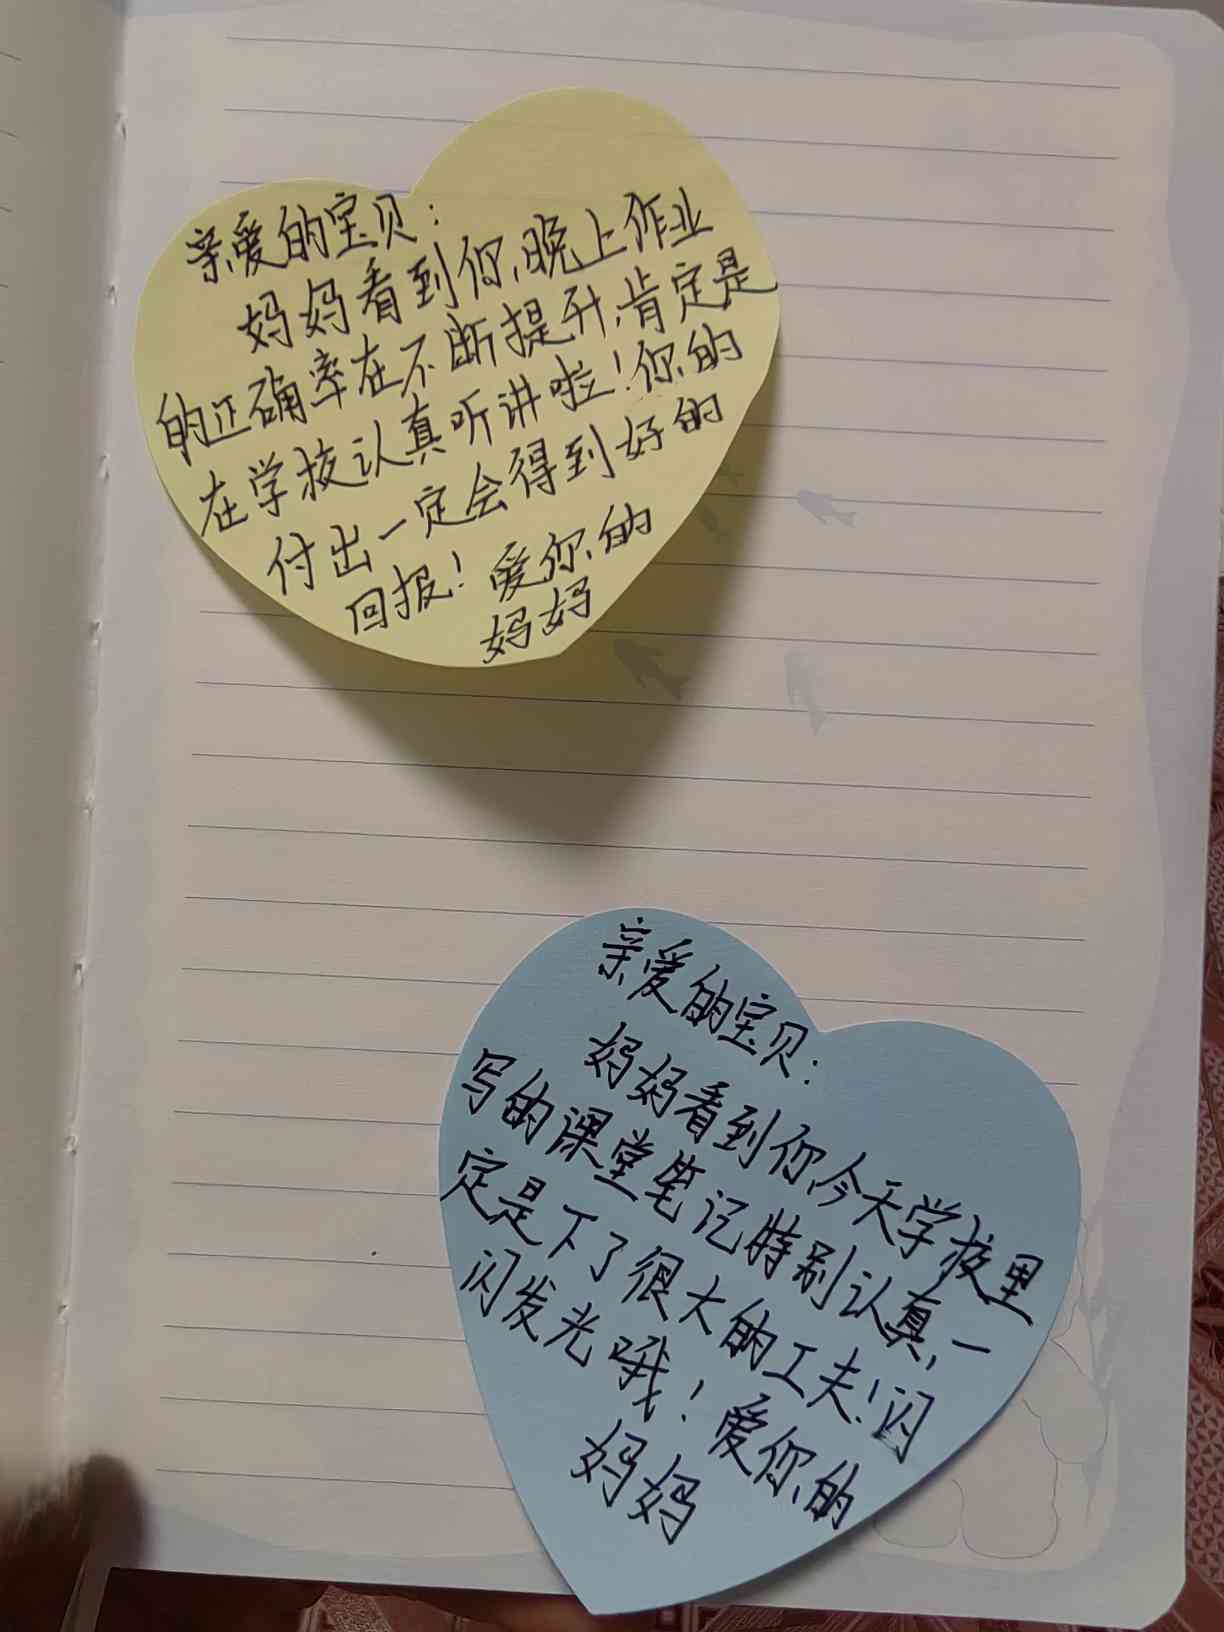 亲爱的宝贝：
妈妈看到你，晚上作业
的正确率在不断提升，肯定是
在学校认真听讲啦！你的
付出一定会得到好的
回报！爱你的
妈妈
亲爱的宝贝：
妈妈看到你，今天学校里
写的课堂笔记特别认真，一
定是下了很大的工夫！闪
闪发光哦！爱你的
妈妈